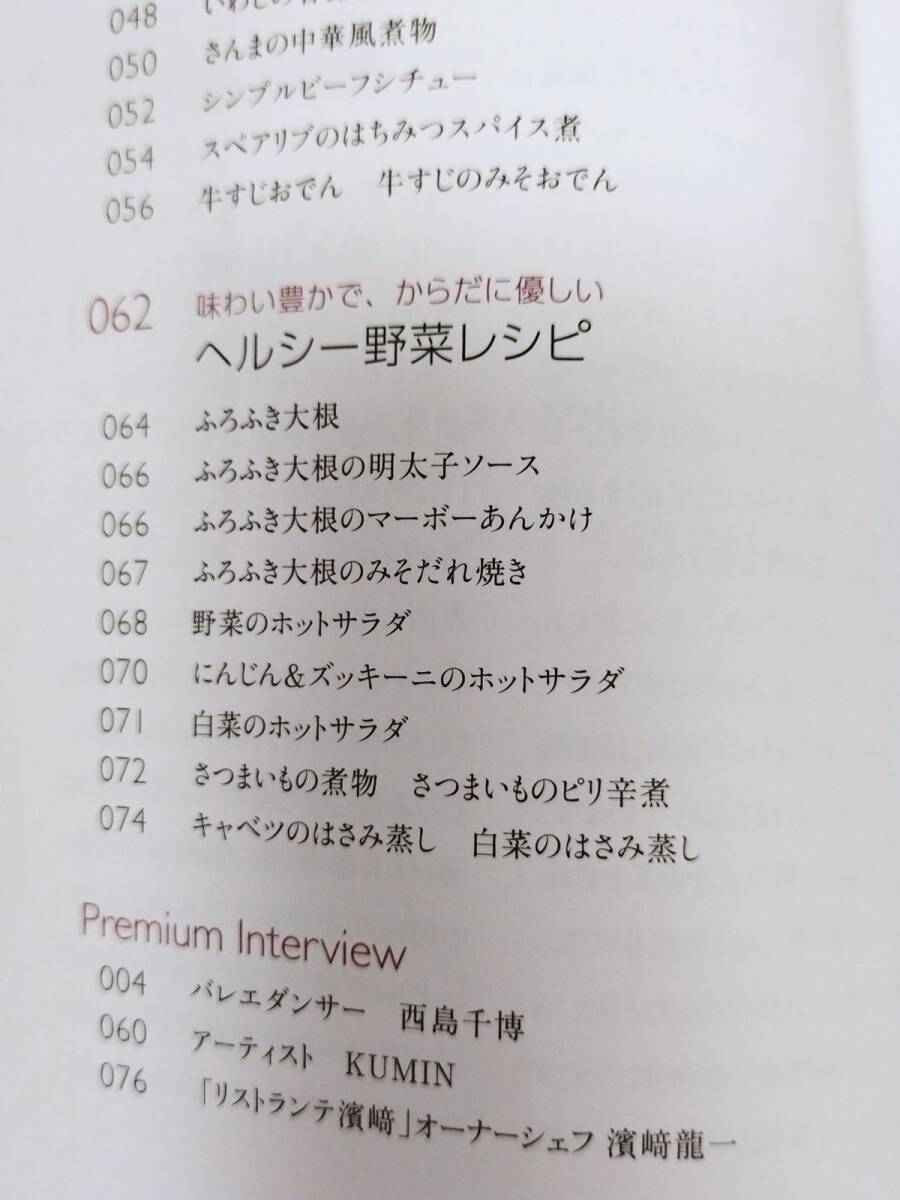 048
050 さんまの中華風煮物
052 シンプルビーフシチュー
054 スペアリブのはちみつスパイス煮
056 牛すじおでん　牛すじのみそおでん
062 味わい豊かで、からだに優しい
ヘルシー野菜レシピ
064 ふろふき大根
066 ふろふき大根の明太子ソース
066 ふろふき大根のマーボーあんかけ
067 ふろふき大根のみそだれ焼き
068 野菜のホットサラダ
070 にんじん&ズッキーニのホットサラダ
071 白菜のホットサラダ
072 さつまいもの煮物　さつまいものピリ辛煮
074 キャベツのはさみ蒸し　白菜のはさみ蒸し
Premium Interview
004 バレエダンサー　西島千博
060 アーティスト　KUMIN
076 「リストランテ濱﨑」オーナーシェフ 濱﨑龍一